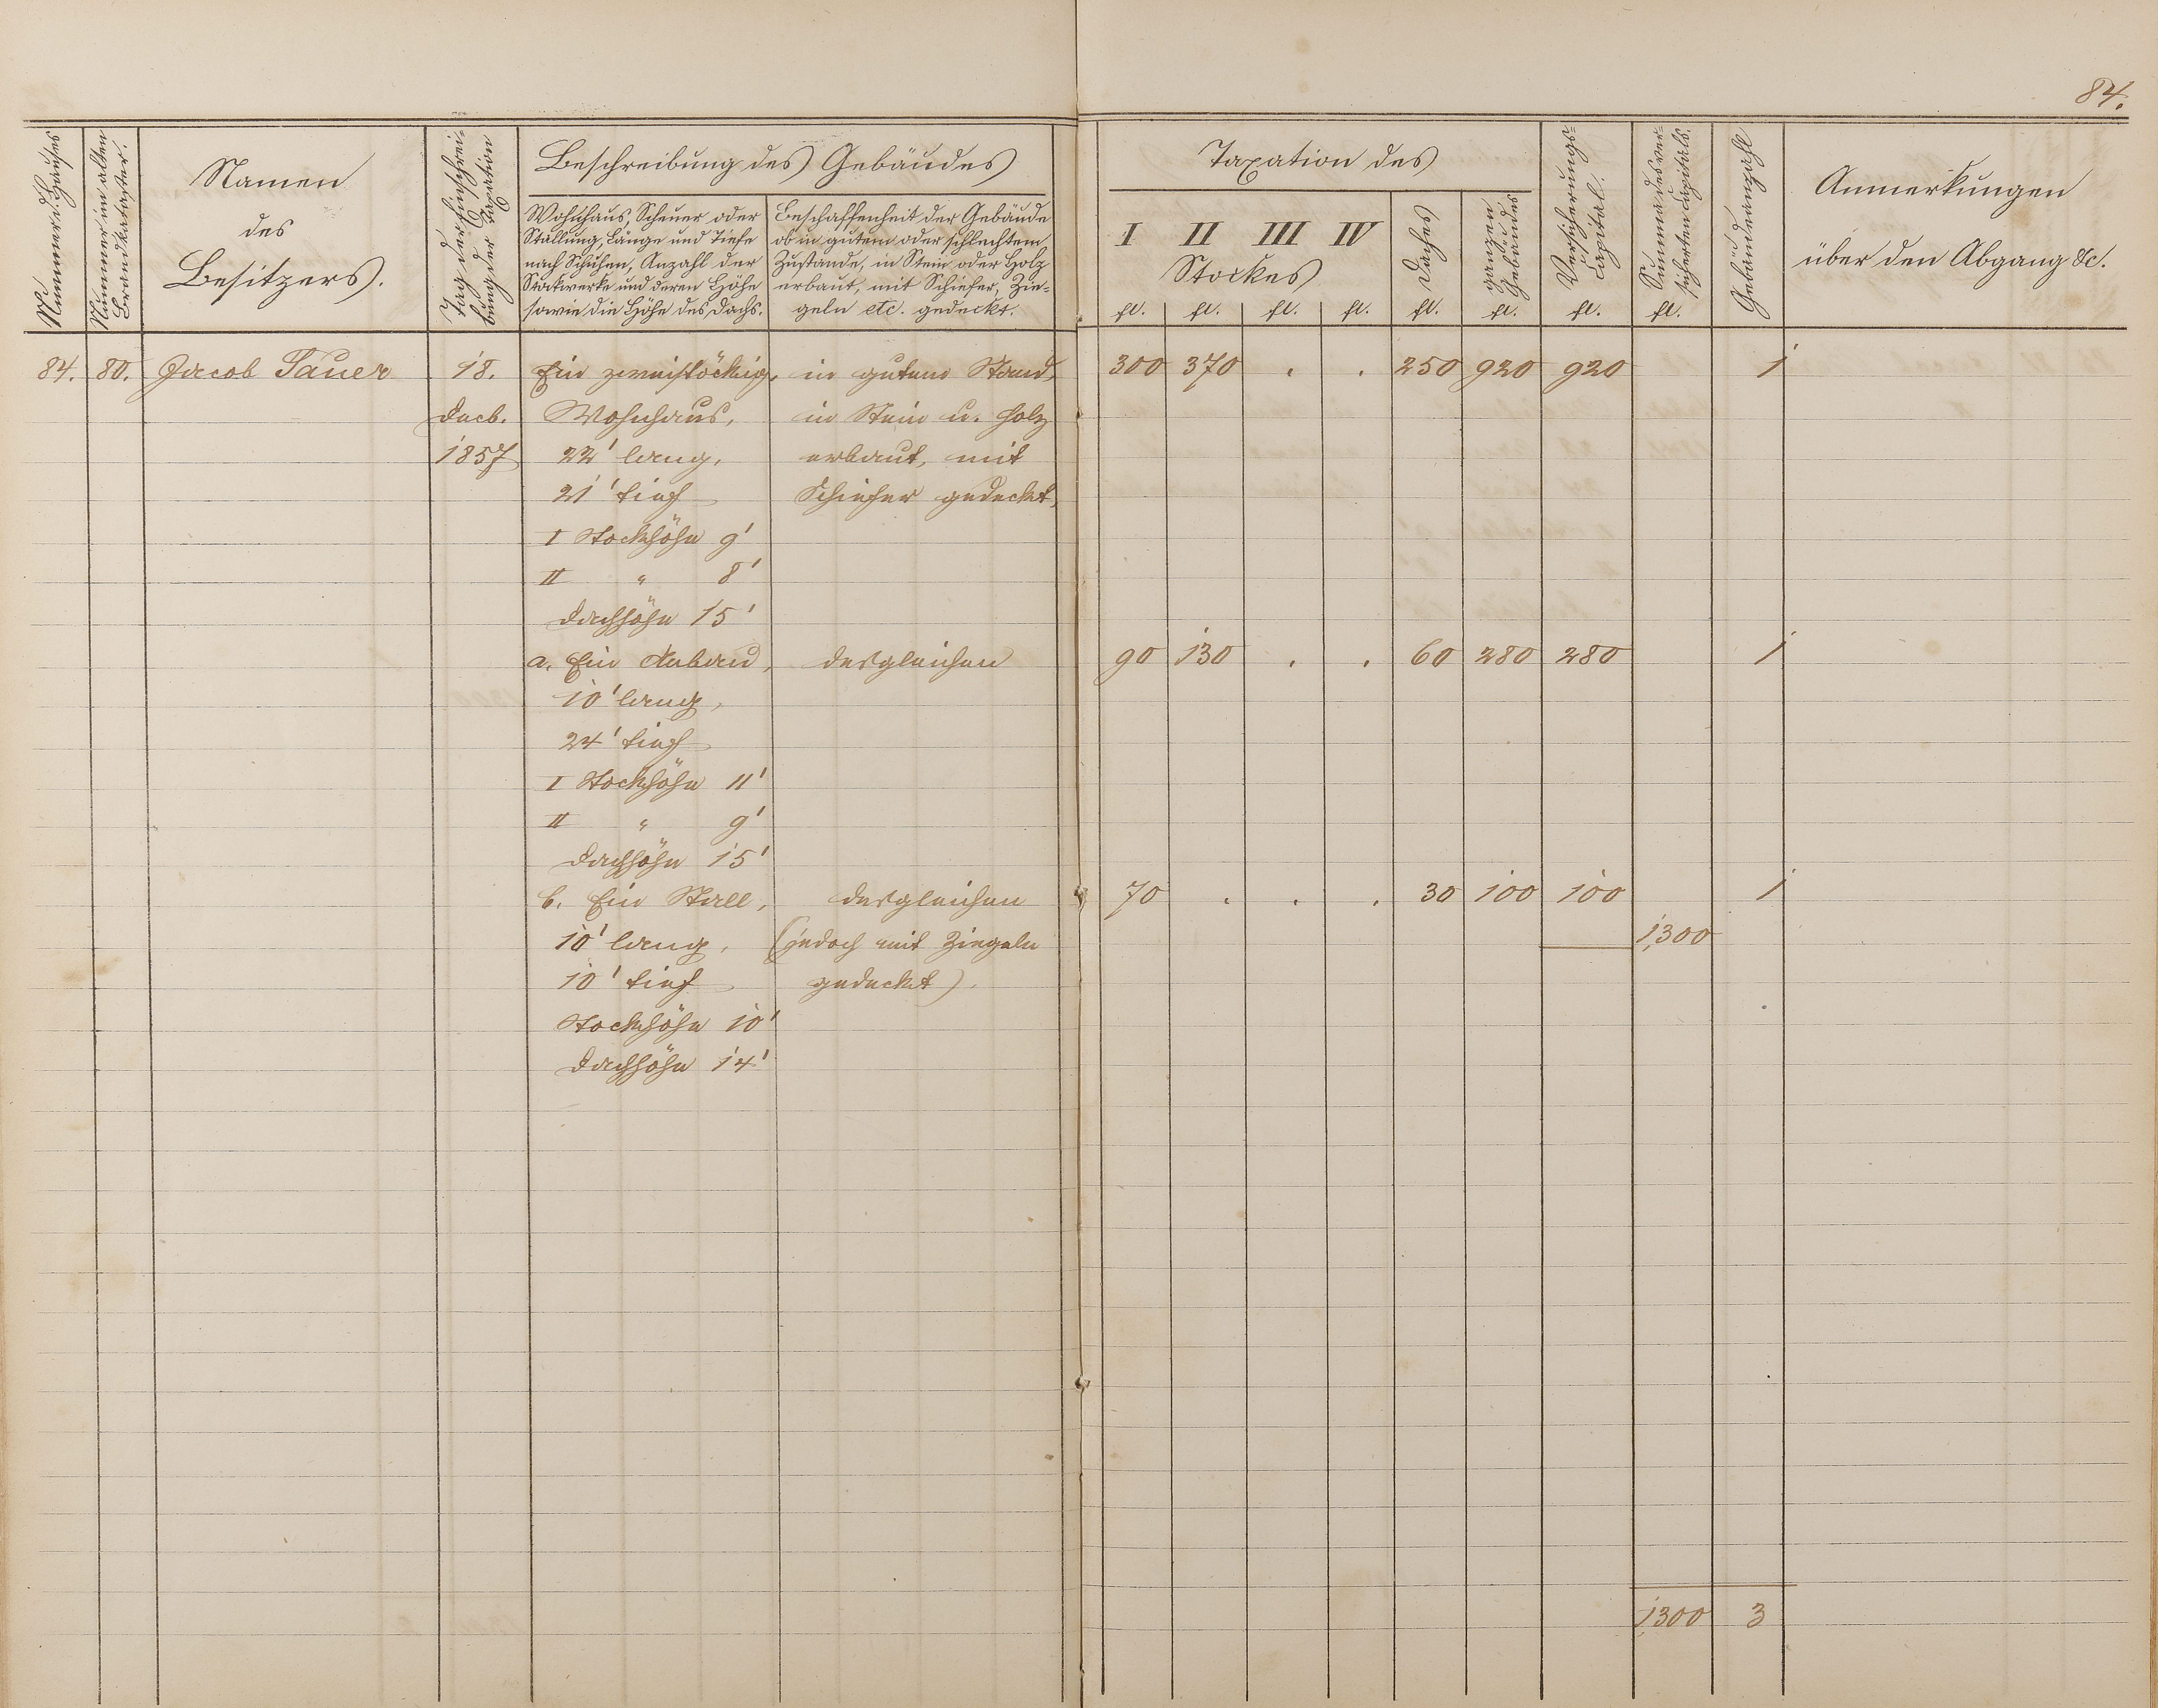 84.
Nummer d. Hauses
Nummer im alten
Brandkataster.
Namen
des
Besitzers.
Tag der Einschrei-
bung der Taxation
Beschreibung des Gebäudes
Wohnhaus, Scheuer oder
Stallung, Länge und Tiefe
nach Schuhen, Anzahl der
Stockwerke und deren Höhe
sowie die Höhe des Dachs.
Beschaffenheit der Gebäude
ob in gutem oder schlechtem
Zustande, in Stein oder Holz
erbaut, mit Schiefer, Zie-
geln etc. gedeckt.
Taxation des
I II III IV
Stockes
Daches
ganzen
Gebäudes
Versicherungs-
Capital.
Summa des ver-
sicherten Capitals.
Gebäudeanzahl
Anmerkungen
über den Abgang &c.
fl. fl. fl. fl. fl. fl. fl. fl.
84. 80. Jacob Sauer 18. Ein zweistöckig. in gutem Stand, 300 370 . . 250 920 920 1
Decb. Wohnhaus, in Stein u. Holz
1857 22' lang, erbaut, mit
21' tief Schiefer gedeckt,
I Stockhöhe 9'
II " 8'
Dachhöhe 15'
a. Ein Anbau, desgleichen 90 130 . . 60 280 280 1
10' lang,
24' tief
I Stockhöhe 11'
II " 9'
Dachhöhe 15'
b. Ein Stall, desgleichen 70 . . . 30 100 100 1
10' lang, (jedoch mit Ziegeln 1,300
10' tief gedeckt).
Stockhöhe 10'
Dachhöhe 14'
1,300 3